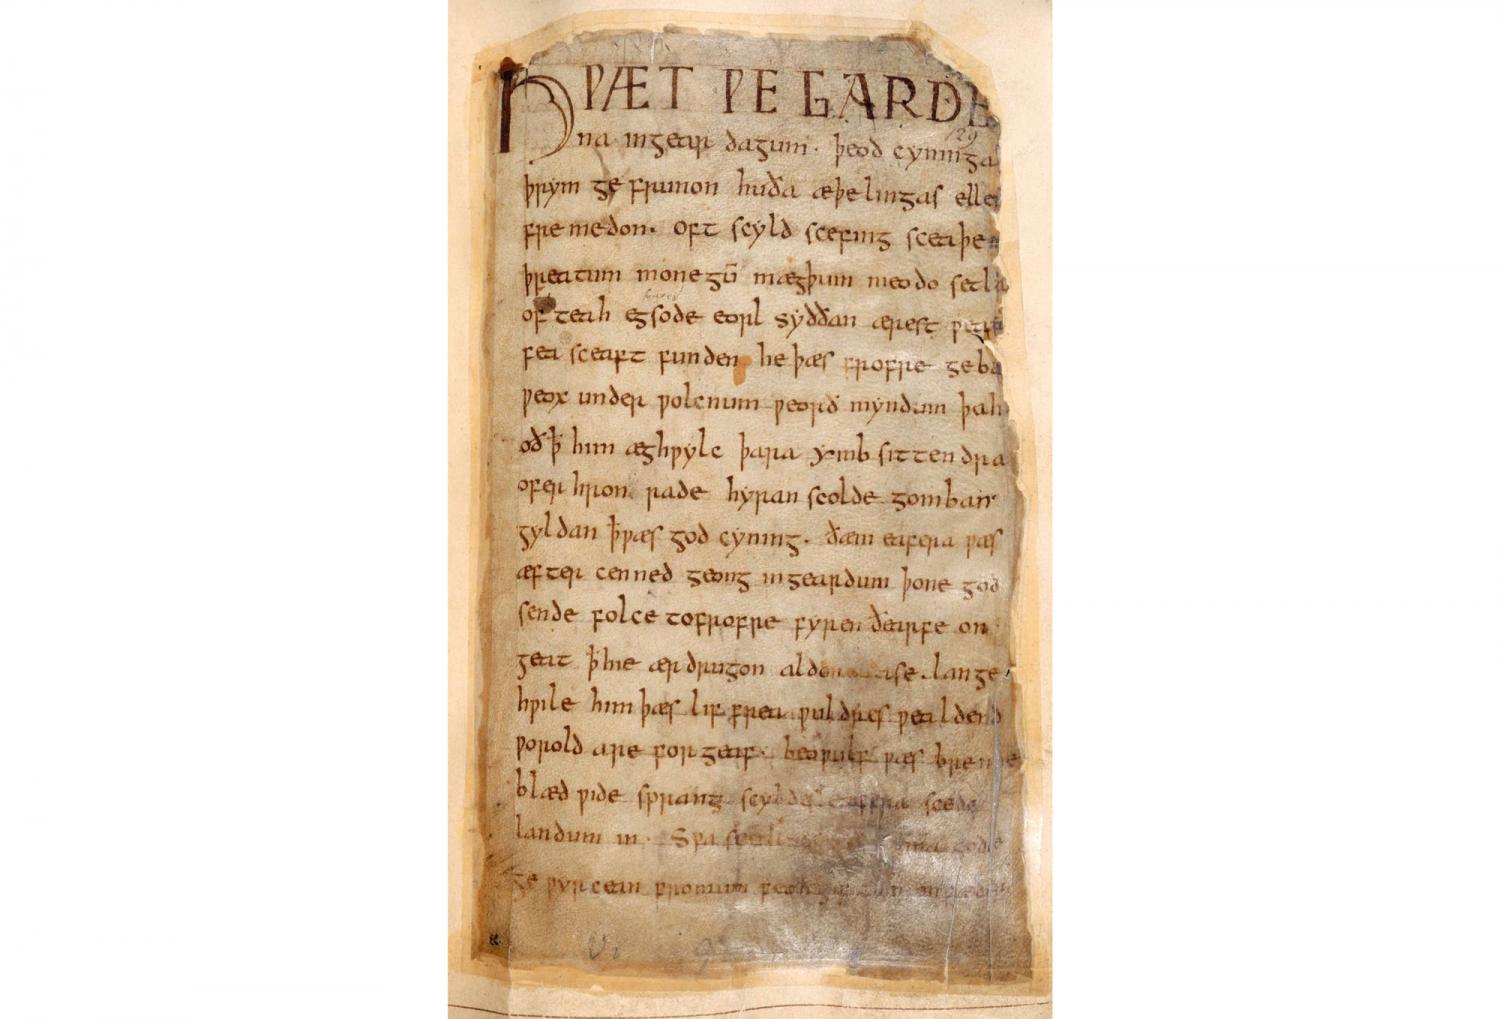 HǷÆT ǷE GARDE
na ingear dagum. þeod cyninga
þrym ge frunon huða æþelingas ellen
fre medon. oft scyld scefing sceaþe
þreatum monegū mægþum meodo setla
of teah egsode eorl syððan ærest ƿearð
fea sceaft funden he þæs frofre geba
ƿeox under ƿolcnum ƿeorð myndum þah
oð ꝥ him æghƿylc þara ymb sittendra
ofer hron rade hyran scolde gomban
gyldan ꝥ ƿæs god cyning. ðæm eafera ƿæs
æfter cenned geong in geardum þone god
sende folce tofrofre fyren ðearfe on
geat ꝥ hie ær drugon aldor ase. lange
hƿile him þæs lif frea ƿuldres ƿealdend
ƿorold are for geaf. beoƿulf ƿæs breme
blæd ƿide sprang scyldes eafera scede
landum in. Sƿa sceal guma gode
ge ƿyrcean fromum feoh giftum
129